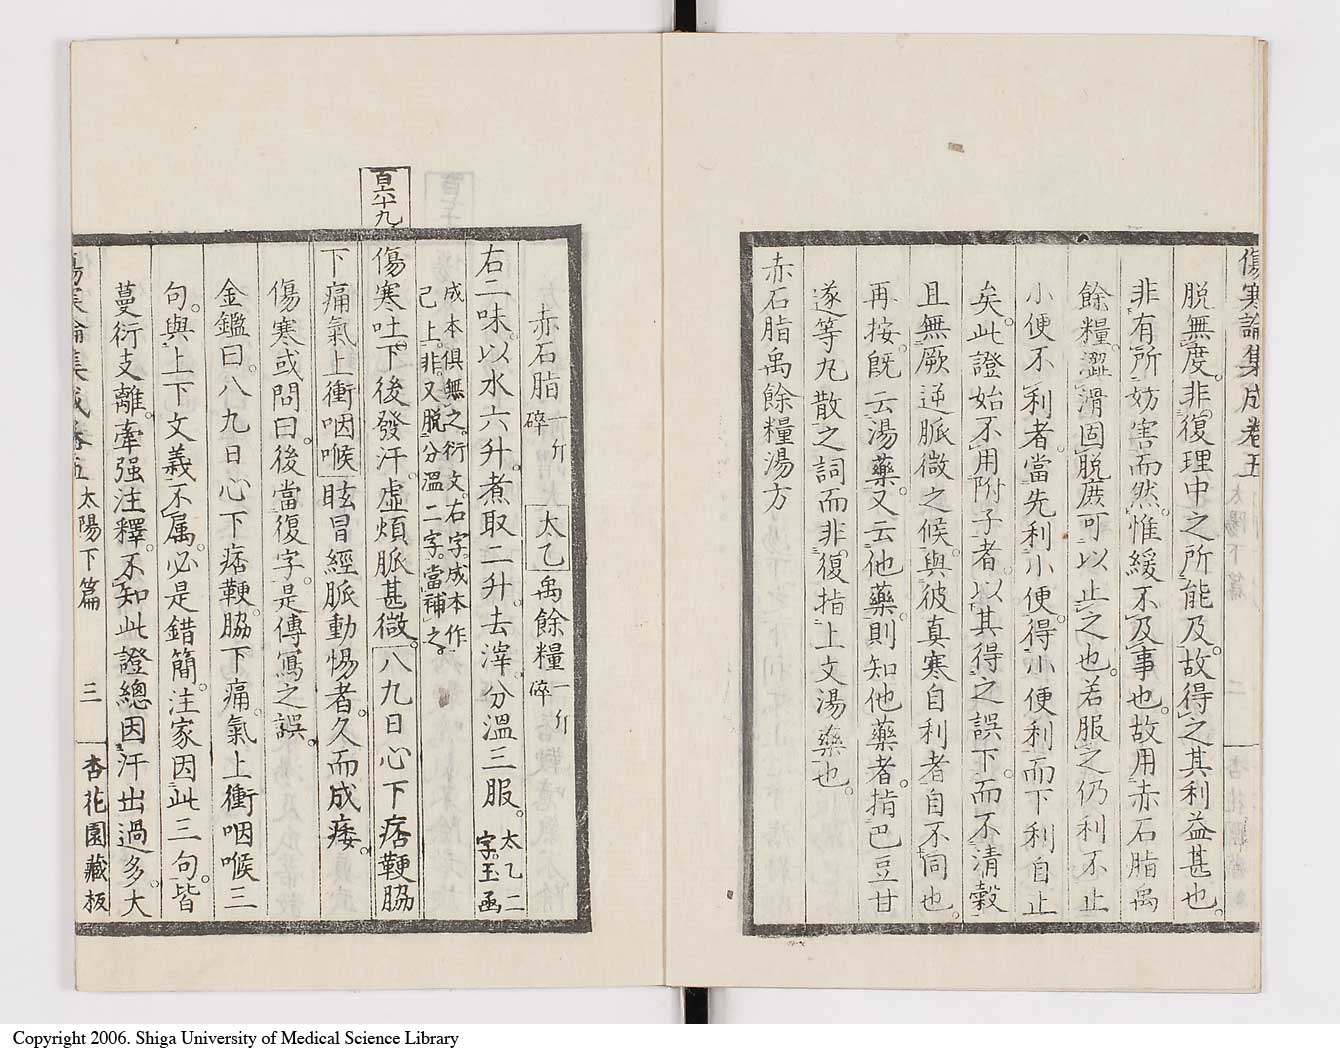 傷寒論集成卷五
太陽下篇
二
脱無度。非復理中之所能及。故得之其利益甚也。
非有所妨害而然。惟緩不及事也。故用赤石脂禹
餘糧。澀滑固脱。庶可以止之也。若服之仍利不止
小便不利者。當先利小便。得小便利而下利自止
矣。此證始不用附子者。以其得之誤下。而不清穀
且無厥逆脈微之候。與彼真寒自利者自不同也。
再按。既云湯藥。又云他藥。則知他藥者。指巴豆甘
遂等丸散之詞而非復指上文湯藥也。
赤石脂禹餘糧湯方
赤石脂一斤碎 太乙禹餘糧一斤碎
右二味。以水六升。煮取二升。去滓。分溫三服。太乙二字。玉函
成本俱無之。衍文。右字。成本作
己上。非。又脱分溫二字。當補之。
百六十九
傷寒吐下後發汗。虛煩脈甚微。八九日心下痞鞕脇
下痛氣上衝咽喉眩冒經脈動惕者。久而成痿。
傷寒或問曰。後當復字。是傳寫之誤。
金鑑曰。八九日心下痞鞕。脇下痛。氣上衝咽喉三
句。與上下文義不属。必是錯簡。注家因此三句。皆
蔓衍支離。牽强注釋。不知此證總因汗出過多。大
傷寒論集成卷五
太陽下篇
三
杏花園藏板
Copyright 2006. Shiga University of Medical Science Library